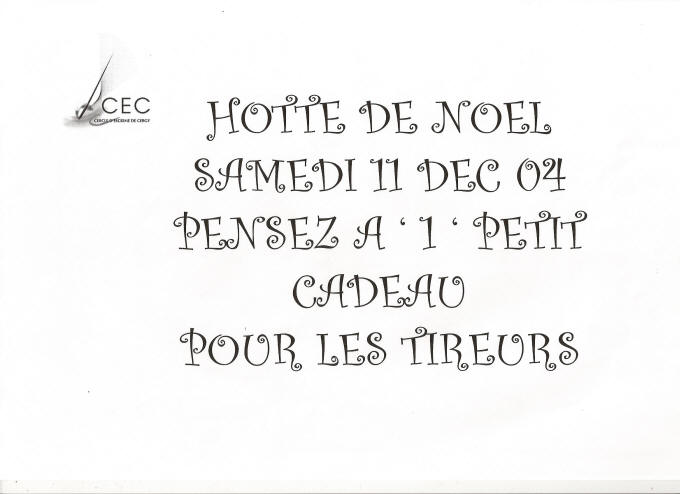 CEC
CERCLE D'ESCRIME DE CERGY
HOTTE DE NOEL
SAMEDI 11 DEC 04
PENSEZ A ' 1 ' PETIT
CADEAU
POUR LES TIREURS